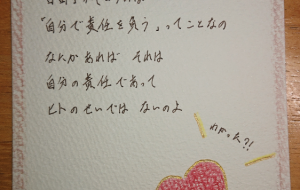 「自分で責任を負う」ってことなの
なにかあれば それは
自分の責任であって
ヒトのせいでは ないのよ
わかった?!